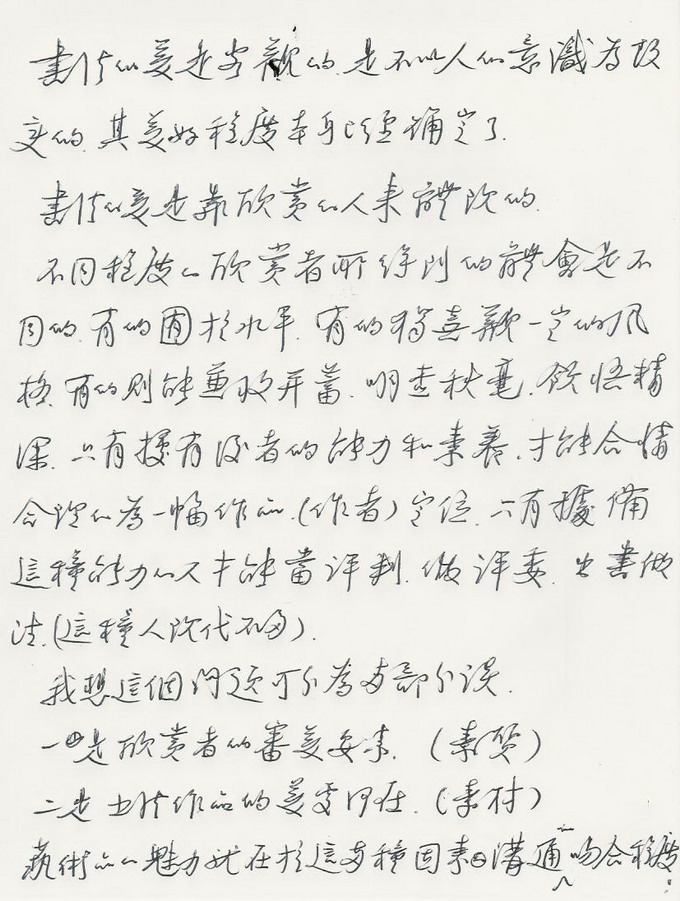 書法的美是客觀的.是不以人的意識為改
变的.其美好程度本身已经确定了.
書法的美是靠欣赏的人来體现的.
不同程度的欣赏者所得到的體會是不
同的.有的囿於水平.有的獨喜歡一定的风
格.有的则能兼收并蓄.明查秋毫.领悟精
深.只有擁有後者的能力和素養.才能合情
合理的為一幅作品.(作者)定位.只有據備
這種能力的人才能當评判.做评委.出書做
法.(這種人现代不多).
我想這個问题可分為两部分谈.
一是欣赏者的審美要求.(素质)
二是書法作品的美要何在.(素材)
藝術品的魅力就在於這两種因素的溝通吻合程度.